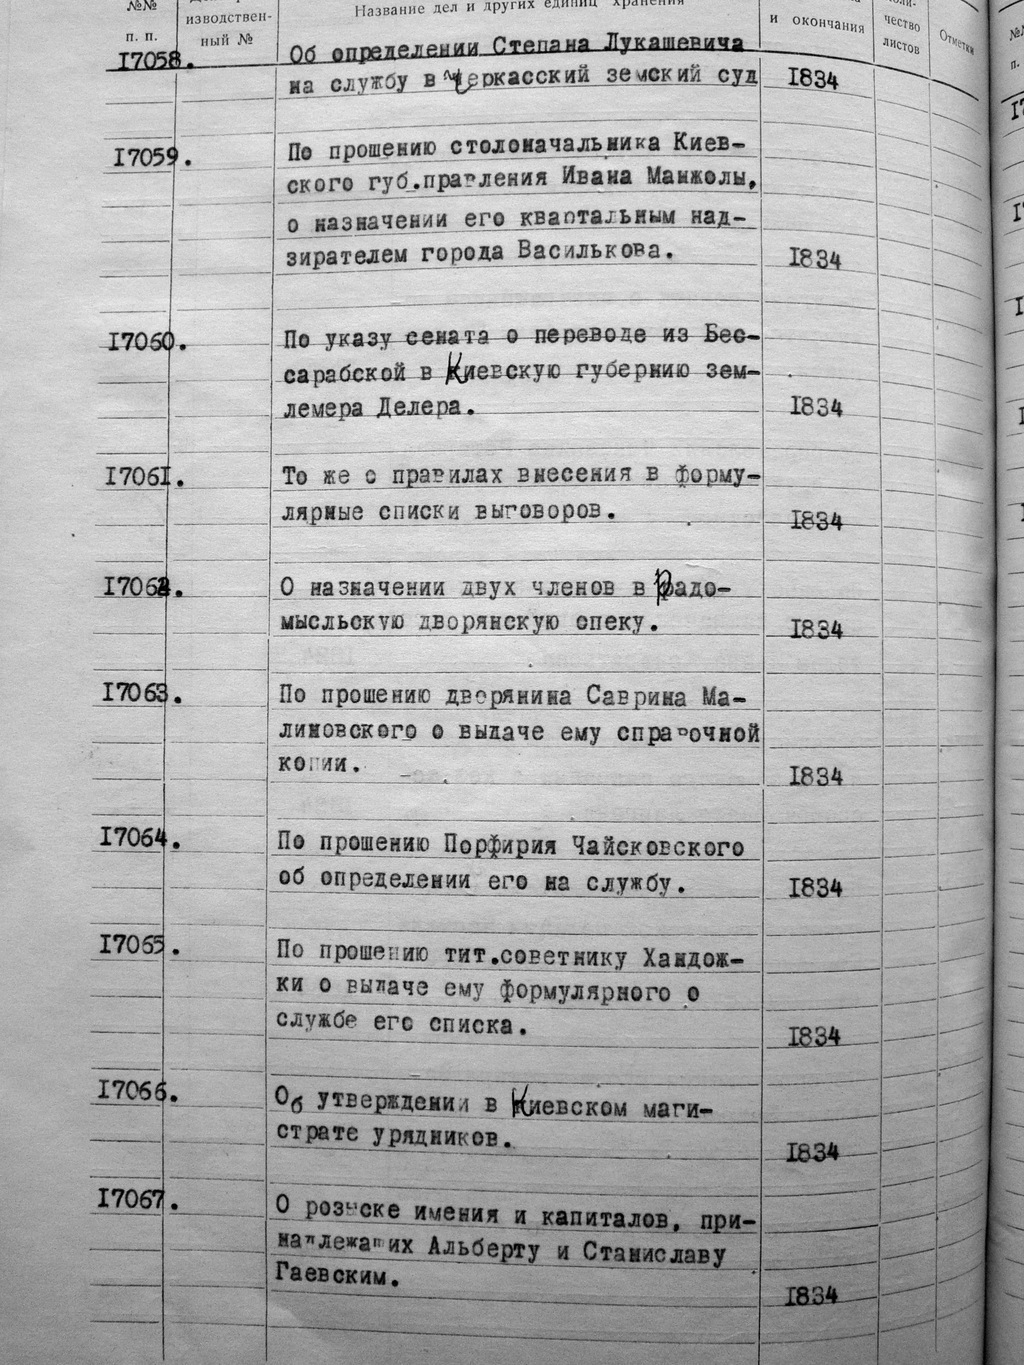 №№
изводствен-
Название дел и других единиц хранения
и окончания
чество
листов
Отметки
п. п.
ный №
17058.
Об определении Степана Лукашевича
на службу в Черкасский земский суд
1834
17059.
По прошению столоначальника Киев-
ского губ.правления Ивана Манжолы,
о назначении его квартальным над-
зирателем города Василькова.
1834
17060.
По указу сената о переводе из Бес-
сарабской в Киевскую губернию зем-
лемера Делера.
1834
17061.
То же о правилах внесения в форму-
лярные списки выговоров.
1834
17062.
О назначении двух членов в Радо-
мысльскую дворянскую опеку.
1834
17063.
По прошению дворянина Саврина Ма-
линовского о выдаче ему справочной
копии.
1834
17064.
По прошению Порфирия Чайсковского
об определении его на службу.
1834
17065.
По прошению тит.советнику Хандож-
ки о выдаче ему формулярного о
службе его списка.
1834
17066.
Об утверждении в Киевском маги-
страте урядников.
1834
17067.
О розыске имения и капиталов, при-
надлежащих Альберту и Станиславу
Гаевским.
1834